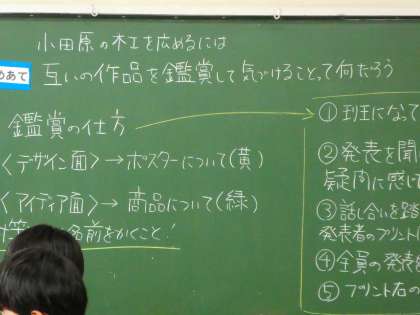 小田原の木工を広めるには
めあて
互いの作品を鑑賞して気づけることって何だろう
鑑賞の仕方
〈デザイン面〉→ポスターについて(黄)
〈アイディア面〉→商品について(緑)
名前をかくこと!
① 班班になって
② 発表を聞
疑問に感じ
③ 話し合いを踏
発表者のプリントに
④ 全員の発表
⑤ プリント右の